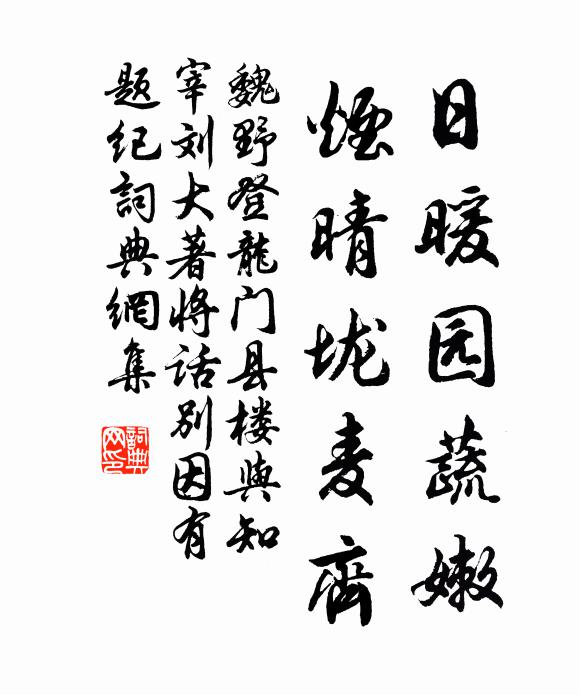 日暖园蔬嫩
烟晴垅麦齊
魏野登龍门县楼與知
宰刘大著将话别因有
题纪詞典網集
詞典
网印